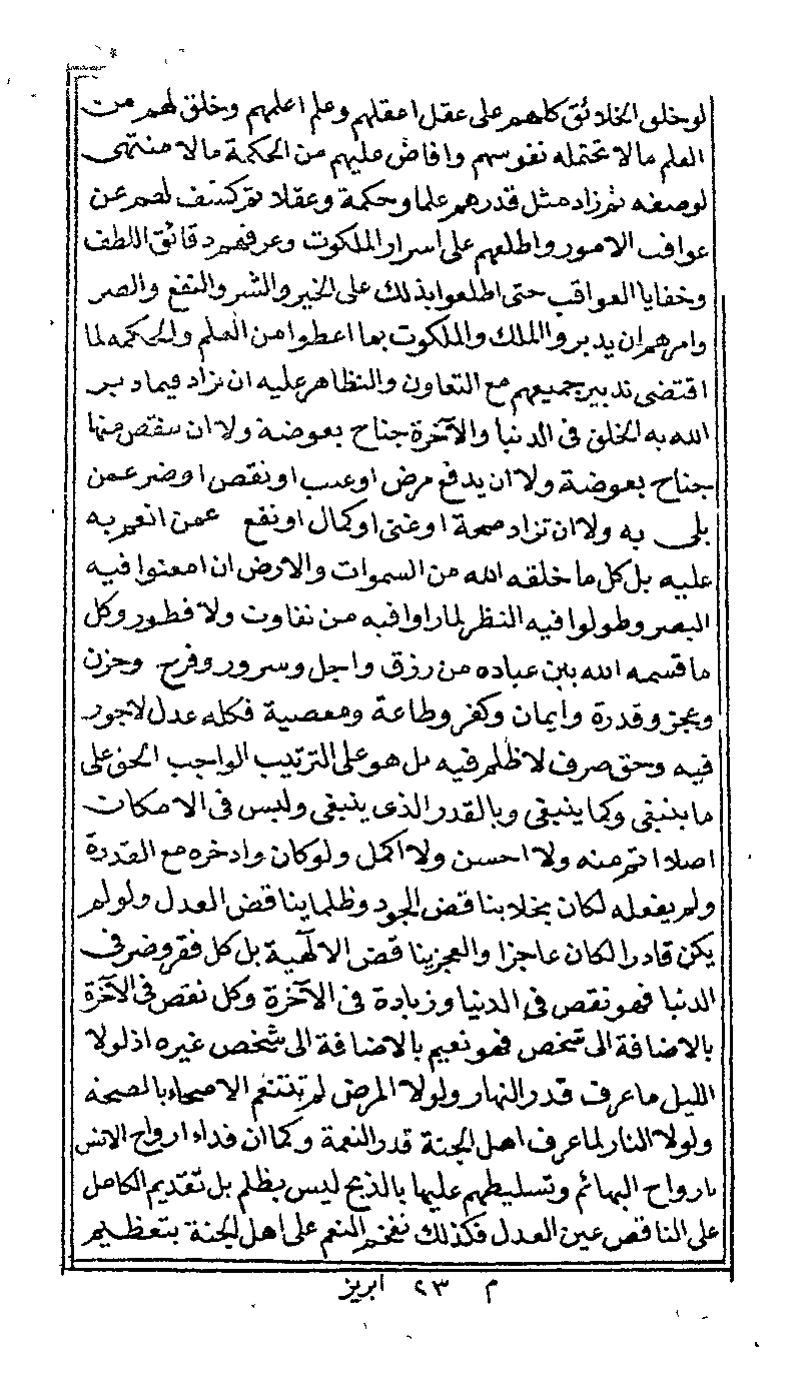 لو خلق الخلائق كلهم على عقل اعقلهم وعلم اعلمهم وخلق لهم من
العلم مالا تحتمله نفوسهم وافاض عليهم من الحكمة مالا منتهى
لوصفه ثم زاد مثل قدرهم علما وحكمة وعقلا ثم كشف لهم عن
عواقب الامور واطلعهم على اسرار الملكوت وعرفهم دقائق اللطف
وخفايا العواقب حتى اطلعوا بذلك على الخير والشر والنفع والضر
وامرهم ان يدبروا الملك والملكوت بما اعطوا من العلم والحكمه لما
اقتضى تدبير جميعهم مع التعاون والتظاهر عليه ان نزاد فيما دبر
الله به الخلق فى الدنيا والآخرة جناح بعوضة ولا ان ينقص منها
جناح بعوضة ولا ان يدفع مرض او عيب او نقص او ضر عمن
بلى به ولا ان تزاد صحة او غنى او كمال او نفع عمن انعم به
عليه بل كل ما خلقه الله من السموات والارض ان امعنوا فيه
البصر وطولوا فيه النظر لما راوا فيه من تفاوت ولا فطور وكل
ما قسمه الله بين عباده من رزق واجل وسرور وفرح وحزن
وعجز وقدرة وايمان وكفر وطاعة ومعصية فكله عدل لا جور
فيه وحق صرف لا ظلم فيه بل هو على الترتيب الواجب الحق على
ما ينبغى وكما ينبغى وبالقدر الذى ينبغى وليس فى الامكان
اصلا اتم منه ولا احسن ولا اكمل ولو كان وادخره مع القدرة
ولم يفعله لكان بخلا يناقض الجود وظلما يناقض العدل ولو لم
يكن قادرا لكان عاجزا والعجز يناقض الالهية بل كل فقر وضر فى
الدنيا فهو نقص فى الدنيا وزيادة فى الآخرة وكل نقص فى الآخرة
بالاضافة الى شخص فهو نعيم بالاضافة الى شخص غيره اذ لولا
الليل ما عرف قدر النهار ولولا المرض لم تتنعم الاصحاء بالصحة
ولولا النار لما عرف اهل الجنة قدر النعمة وكما ان فداء ارواح الانس
بارواح البهائم وتسليطهم عليها بالذبح ليس بظلم بل تقديم الكامل
على الناقص عين العدل فكذلك تفخيم النعم على اهل الجنة بتعظيم
م ٢٣ ابريز